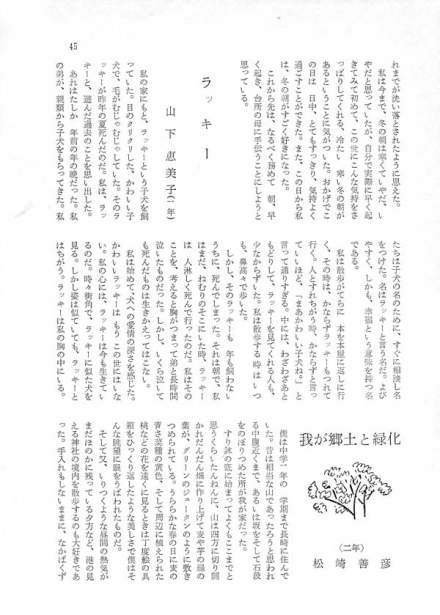 45
れまでが洗い落とされたように思えた。
私は今まで、冬の朝は寒くていやだ、い
やだと思っていたが、自分で実際に早く起
きてみて初めて、この世にこんな気持をさ
っぱりしてくれる、冷たい 寒い冬の朝が
あるということに気がついた。おかげでこ
の日は 日中、とてもすっきり、気持よく
過ごすことができた。また、この日から私
は、冬の朝がすごく好きになった。
これから先は、なるべく務めて 朝、早
く起き、台所の母に手伝うことにしようと
思っている。
ラッキー
山下恵美子(二年)
私の家にもと、ラッキーという子犬を飼
っていた。目のクリクリした、かわいい子
犬で、毛がむじゃむじゃしていた。そのラ
ッキーが昨年の夏死んだのだ。私は、ラッ
キーと、遊んだ過去のことを思い出した。
あれはたしか 年前の年の晩だった。私
の弟が、親類から子犬をもらってきた。私
たちは子犬の名のために、すぐに相談し名
をつけた。名はラッキーと言う名だ。よび
やすく、しかも、幸福という意味を持つ名
である。
私は散歩がてらに 本を本屋に返しに行
く、その時は、かならずラッキーもつれて
行く。人とすれちがう時、かならずと言っ
ていいほど、「まあかわいい子犬ね。」と
言って通りすぎる。中には、わざわざあと
もどりして、ラッキーを見てくれる人も、
少なからずいた。私は散歩する時はいつ
も、鼻高々で歩いた。
しかし、そのラッキーも 年も飼わない
うちに 死んでしまった。それは朝で、私
はまだ、ねむりのそこにいた時、ラッキー
は 人淋しく死んで行ったのだ。私はその
ことを、考えると胸がつまって弟と長時間
泣いたものだった。しかし、いくら泣いて
も死んだものは生きかえってはこない。
私は始めて、犬への愛情の深さを感じた。
かわいいラッキーは もう、この世にはいな
い。私の心には、ラッキーは今も生きてい
るのだ。時々街角で、ラッキーに似た犬を
見る。しかし姿は似ていても、ラッキーと
はちがう。ラッキーは私の胸の中にいる。
我が郷土と緑化
(二年)
松崎善彦
僕は中学一年の 学期まで長崎に住んで
いた。昔は相当な山であったろうと思われ
る中腹近くまで、あるいは坂をそして石段
をのぼりつめた所が我が家だった。
すり鉢の底に始まってよくもここまでと
思うくらいたんねんに、山は四方に切り開
かれだんだん畑に作り上げて麦や芋の緑の
葉が、グリーンのジュータンのように敷き
つめられている。うららかな春の日に麦の
青さ菜種の黄色、そして周辺に植えられた
桃などの花を遠くに見るときは丁度絵の具
箱をひっくり返したような美しさで僕はそ
んな眺望に眼をうばわれたものだ。
そして又、いりつくような昼間の熱気が
まだほのかに残っている夕方など、港の見
える神社の境内を散歩するのも大好きだ
った。手入れもしないままに、なかばくず